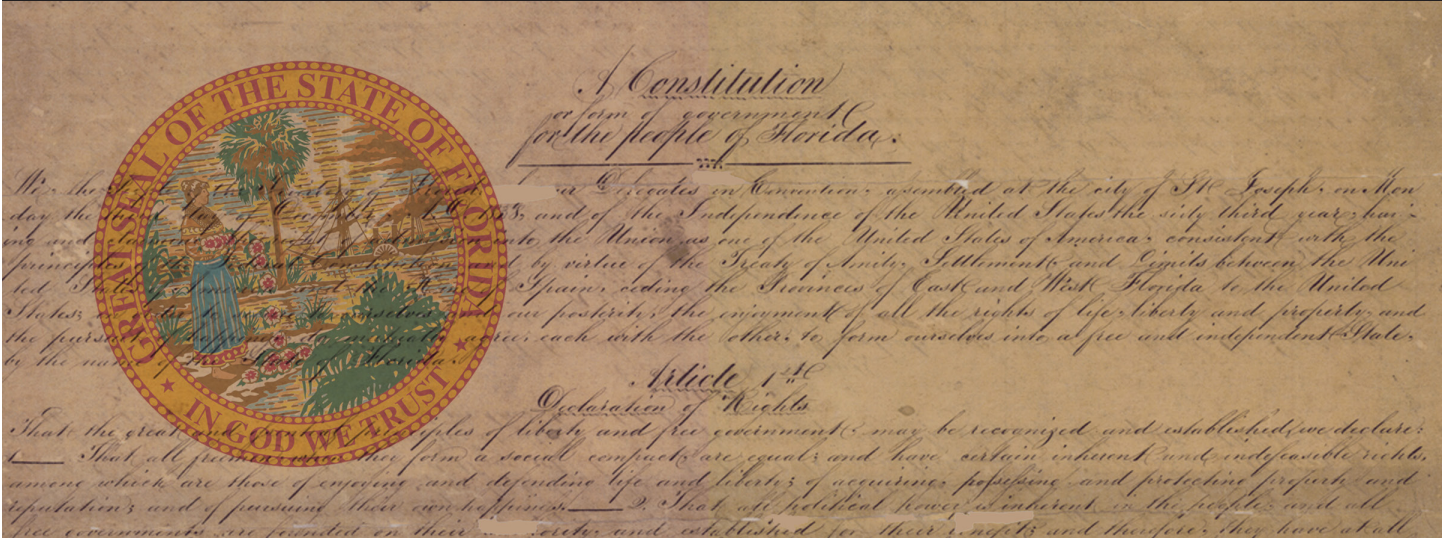 GREAT SEAL OF THE STATE OF FLORIDA
IN GOD WE TRUST
A Constitution
or form of government
for the people of Florida.
We, the of the of our Delegates in Convention, assembled at the city of St Joseph, on Mon
day the day of and of the Independence of the United States the sixty third year, hav-
ing and claiming the right of admission into the Union, as one of the United States of America, consistent with the
principles of the by virtue of the Treaty of Amity, Settlement and Limits between the Uni
ted States of and the of Spain, ceding the Provinces of East and West Florida to the United
States; in to to ourselves our posterity, the enjoyment of all the rights of life, liberty and property, and
the pursuit of agree, each with the other, to form ourselves into a free and independent State,
by the name of the State of Florida.
Article 1st
Declaration of Rights
That the great of liberty and free government may be recognized and established, we declare:
1 That all freemen when they form a social compact, are equal; and have certain inherent and indefeasible rights,
among which are those of enjoying and defending life and liberty; of acquiring, possessing and protecting property and
reputation; and of pursuing their own happiness. 2. That all political power is inherent in the people, and all
free governments are founded on their and established for their and therefore, they have at all